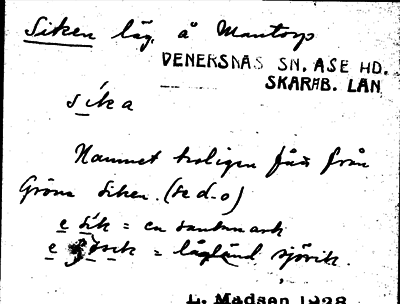 Siken läg. å Mantorp
VENERSNÄS SN. ÅSE HD.
SKARAB. LÄN
síka
Namnet troligen från
Gröne Siken. (se d.o)
e sík = en sankmark
e = lågländ sjövik.
L. Madsen 1928